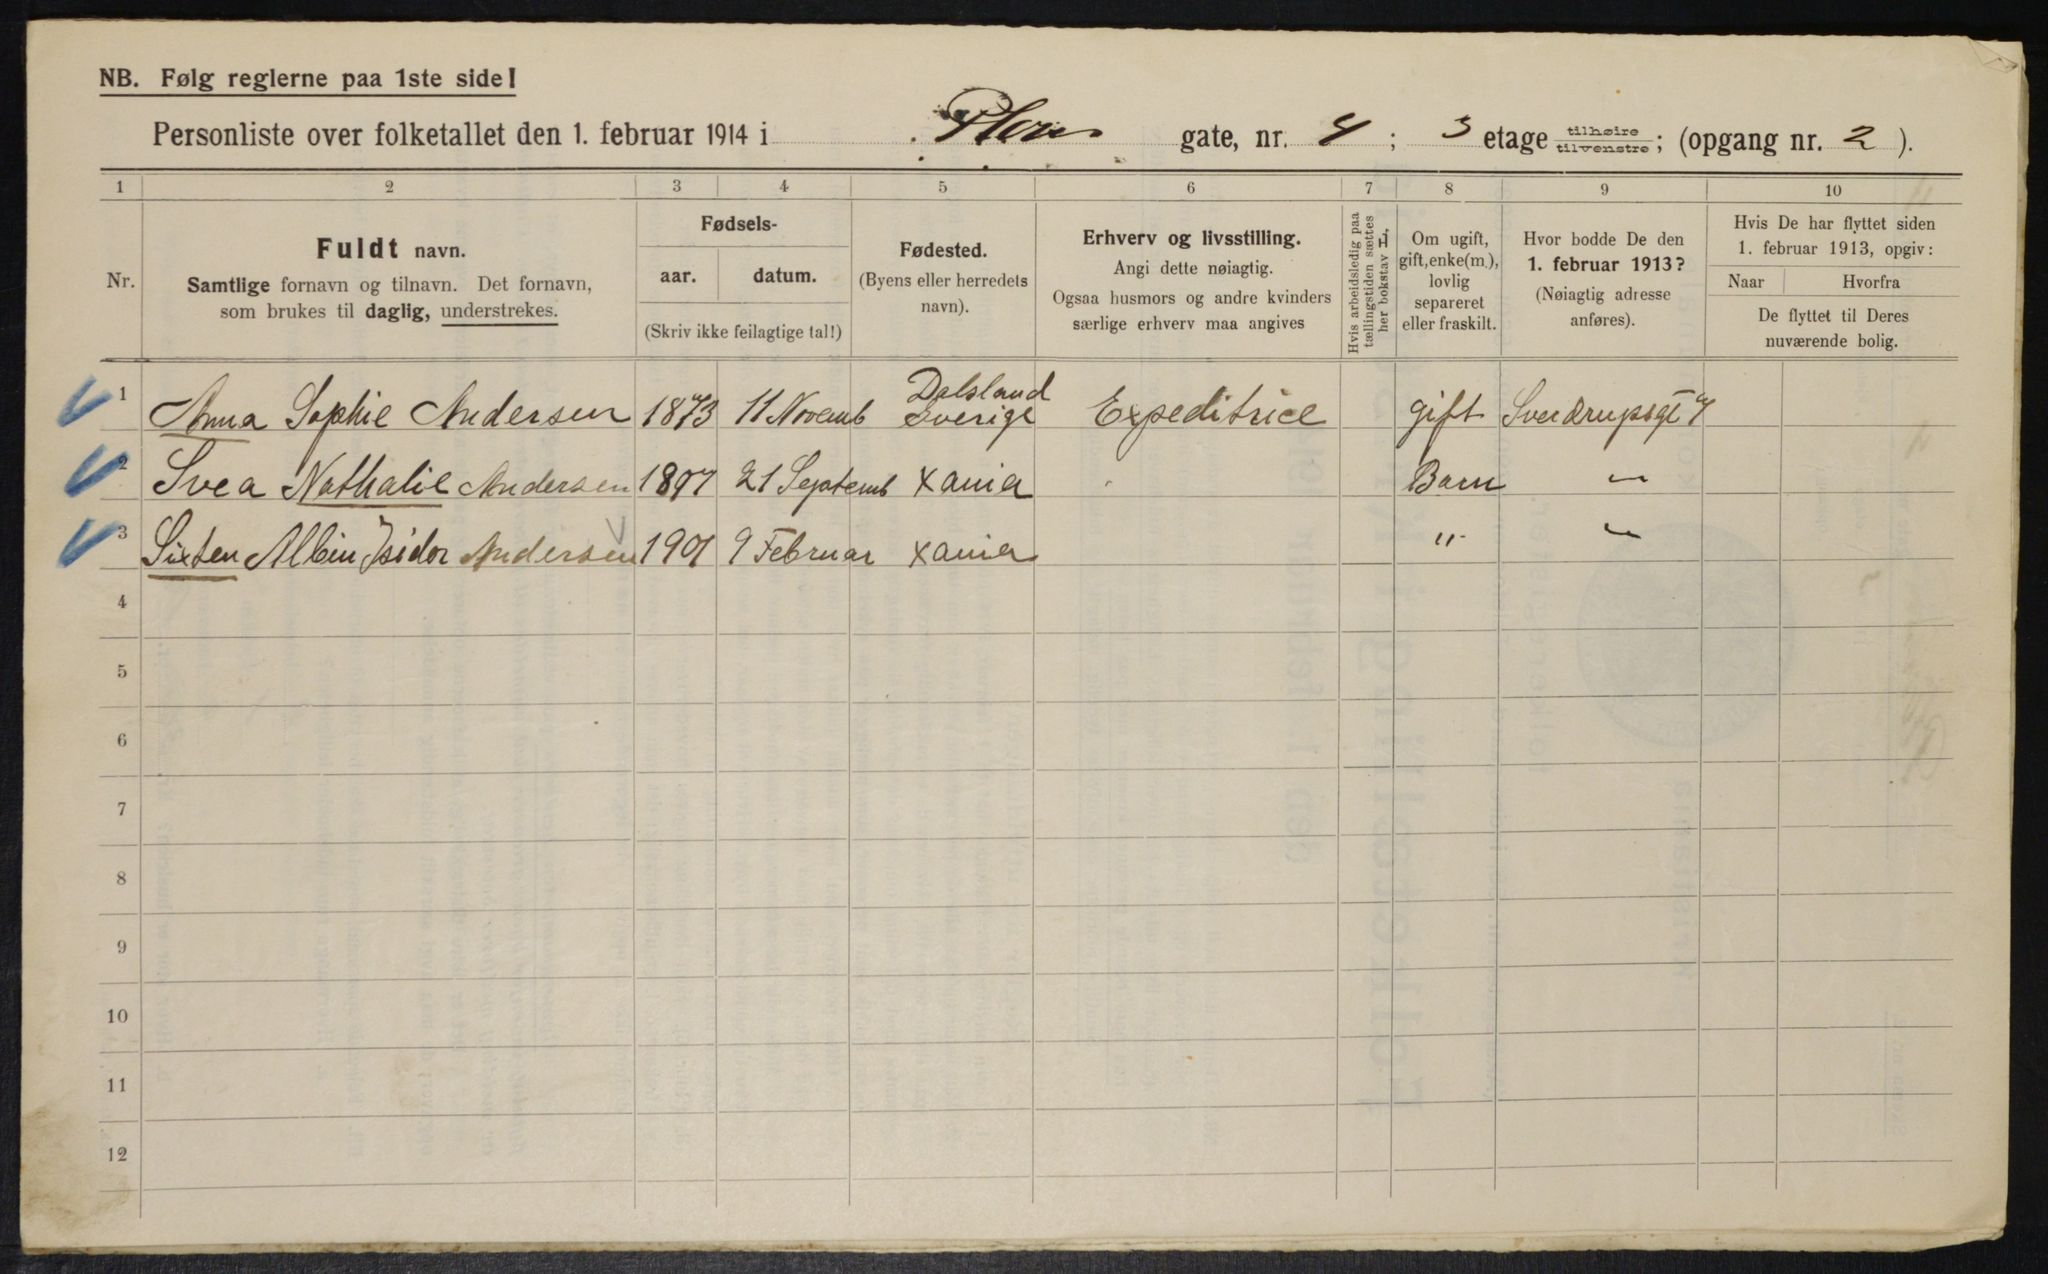 NB. Følg reglerne paa 1ste side!
Personliste over folketallet den 1. februar 1914 i gate, nr. 4 ; 3 etage tilhøire tilvenstre ; (opgang nr. 2 ).
1 2 3 4 5 6 7 8 9 10
Nr.
Fuldt navn.
Samtlige fornavn og tilnavn. Det fornavn,
som brukes til daglig, understrekes.
Fødsels-
aar. datum.
(Skriv ikke feilagtige tal!)
Fødested.
(Byens eller herredets
navn).
Erhverv og livsstilling.
Angi dette nøiagtig.
Ogsaa husmors og andre kvinders
særlige erhverv maa angives
Hvis arbeidsledig paa
tællingstiden sættes
her bokstav L.
Om ugift,
gift, enke(m.),
lovlig
separeret
eller fraskilt.
Hvor bodde De den
1. februar 1913?
(Nøiagtig adresse
anføres).
Hvis De har flyttet siden
1. februar 1913, opgiv:
Naar Hvorfra
De flyttet til Deres
nuværende bolig.
1 Anna Sophie Andersen 1873 11 Novemb Dalsland Sverige Expeditrice gift Sverdrupsgt 4
2 Svea Nathalie Andersen 1897 21 Septemb Xania Barn "
3 Sixten Albin Isidor Andersen 1901 9 Februar Xania " "
4
5
6
7
8
9
10
11
12